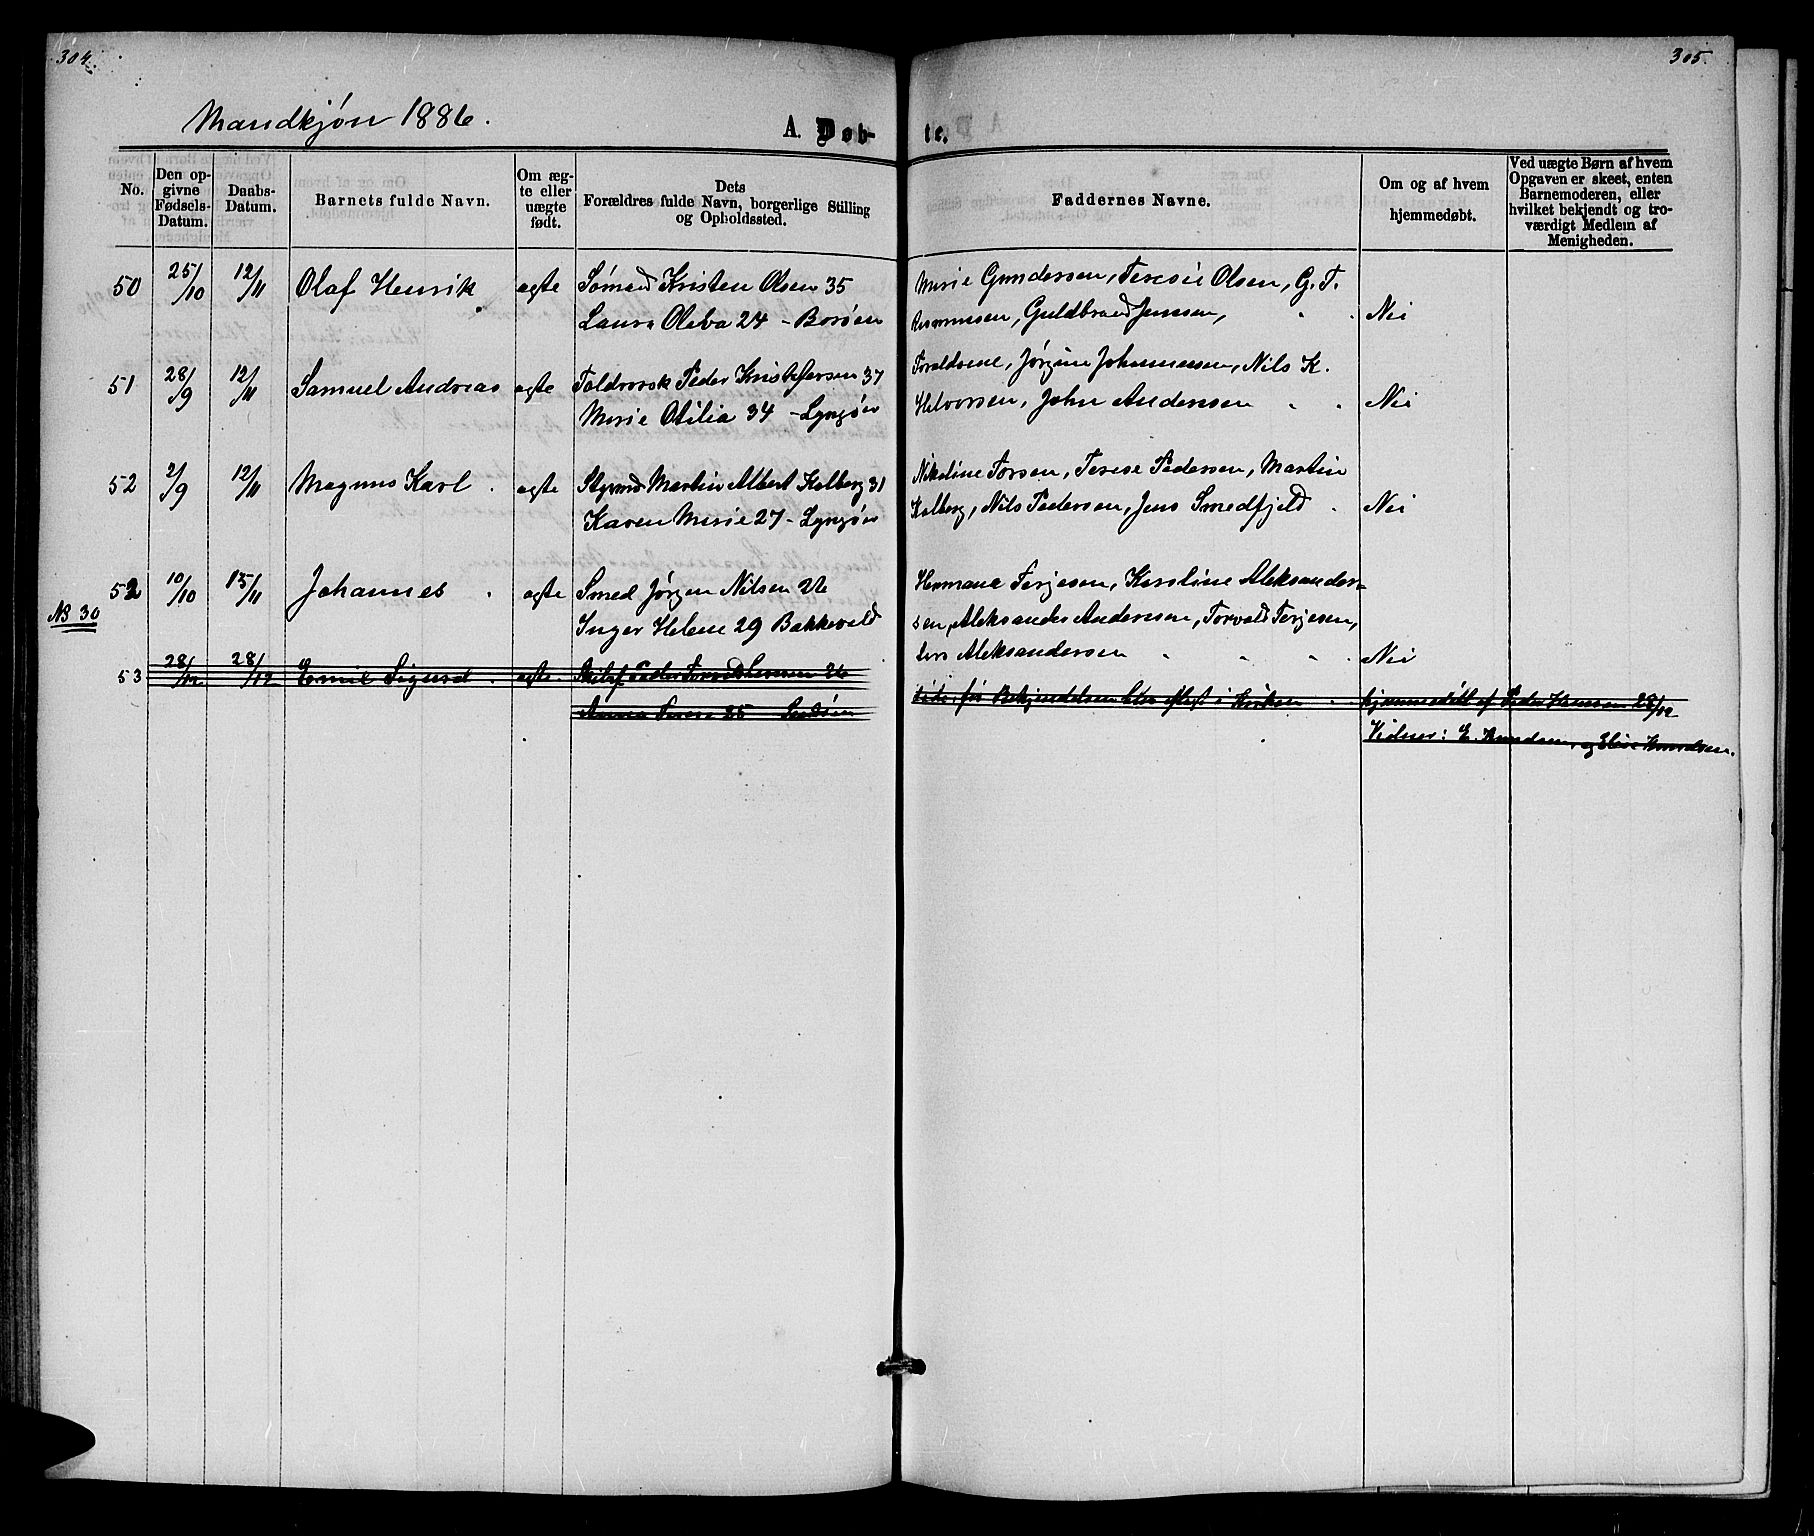 304.
305.
Mandkjøn 1886.
A. Døb-
te.
No.
Den op-
givne
Fødsels-
Datum.
Daabs-
Datum.
Barnets fulde Navn.
Om æg-
te eller
uægte
født.
Dets
Forældres fulde Navn, borgerlige Stilling
og Opholdssted.
Faddernes Navne.
Om og af hvem
hjemmedøbt.
Ved uægte Børn af hvem
Opgaven er skeet, enten
Barnemoderen, eller
hvilket bekjendt og tro-
værdigt Medlem af
Menigheden.
50 25/10 12/11 Olaf Henrik ægte Sømand Kristen Olsen 35
Laura Oleva 24 - Borøen
Marie Gundersen, Teresie Olsen, G. T.
Rasmussen, Guldbrand Jenssen, Nei
51 28/9 12/11 Samuel Andreas ægte Toldrorsk Peder Kristofersen 37
Marie Otilia 34 - Lyngør
Forældrene, Jørgine Johannessen, Nils K.
Halvorsen, John Andersen Nei
52 2/9 12/11 Magnus Karl ægte Styrmd Martin Albert Kalberg 31
Karen Marie 27 - Lyngør
Nikoline Torsen, Terese Pedersen, Martin
Kalberg, Nils Pedersen, Jens Smedfjeld Nei
52 10/10 15/11 Johannes ægte Smed Jørgen Nilsen 26
NB 30
Inger Helene 29 Bakkevold
Hermana Terjesen, Karoline Aleksander-
sen, Aleksander Andersen, Torvald Terjesen,
Lars Aleksandersen Nei
53 28/12 28/12 Emil Sigurd ægte Peder 26
Anna 25 Sandøen
døde før Bekjendelsen blev aflagt i Kirken hjemmedøbt af Peder Hansen 28/12
Vidner: E. Knudsen, og Elise Knudsen.